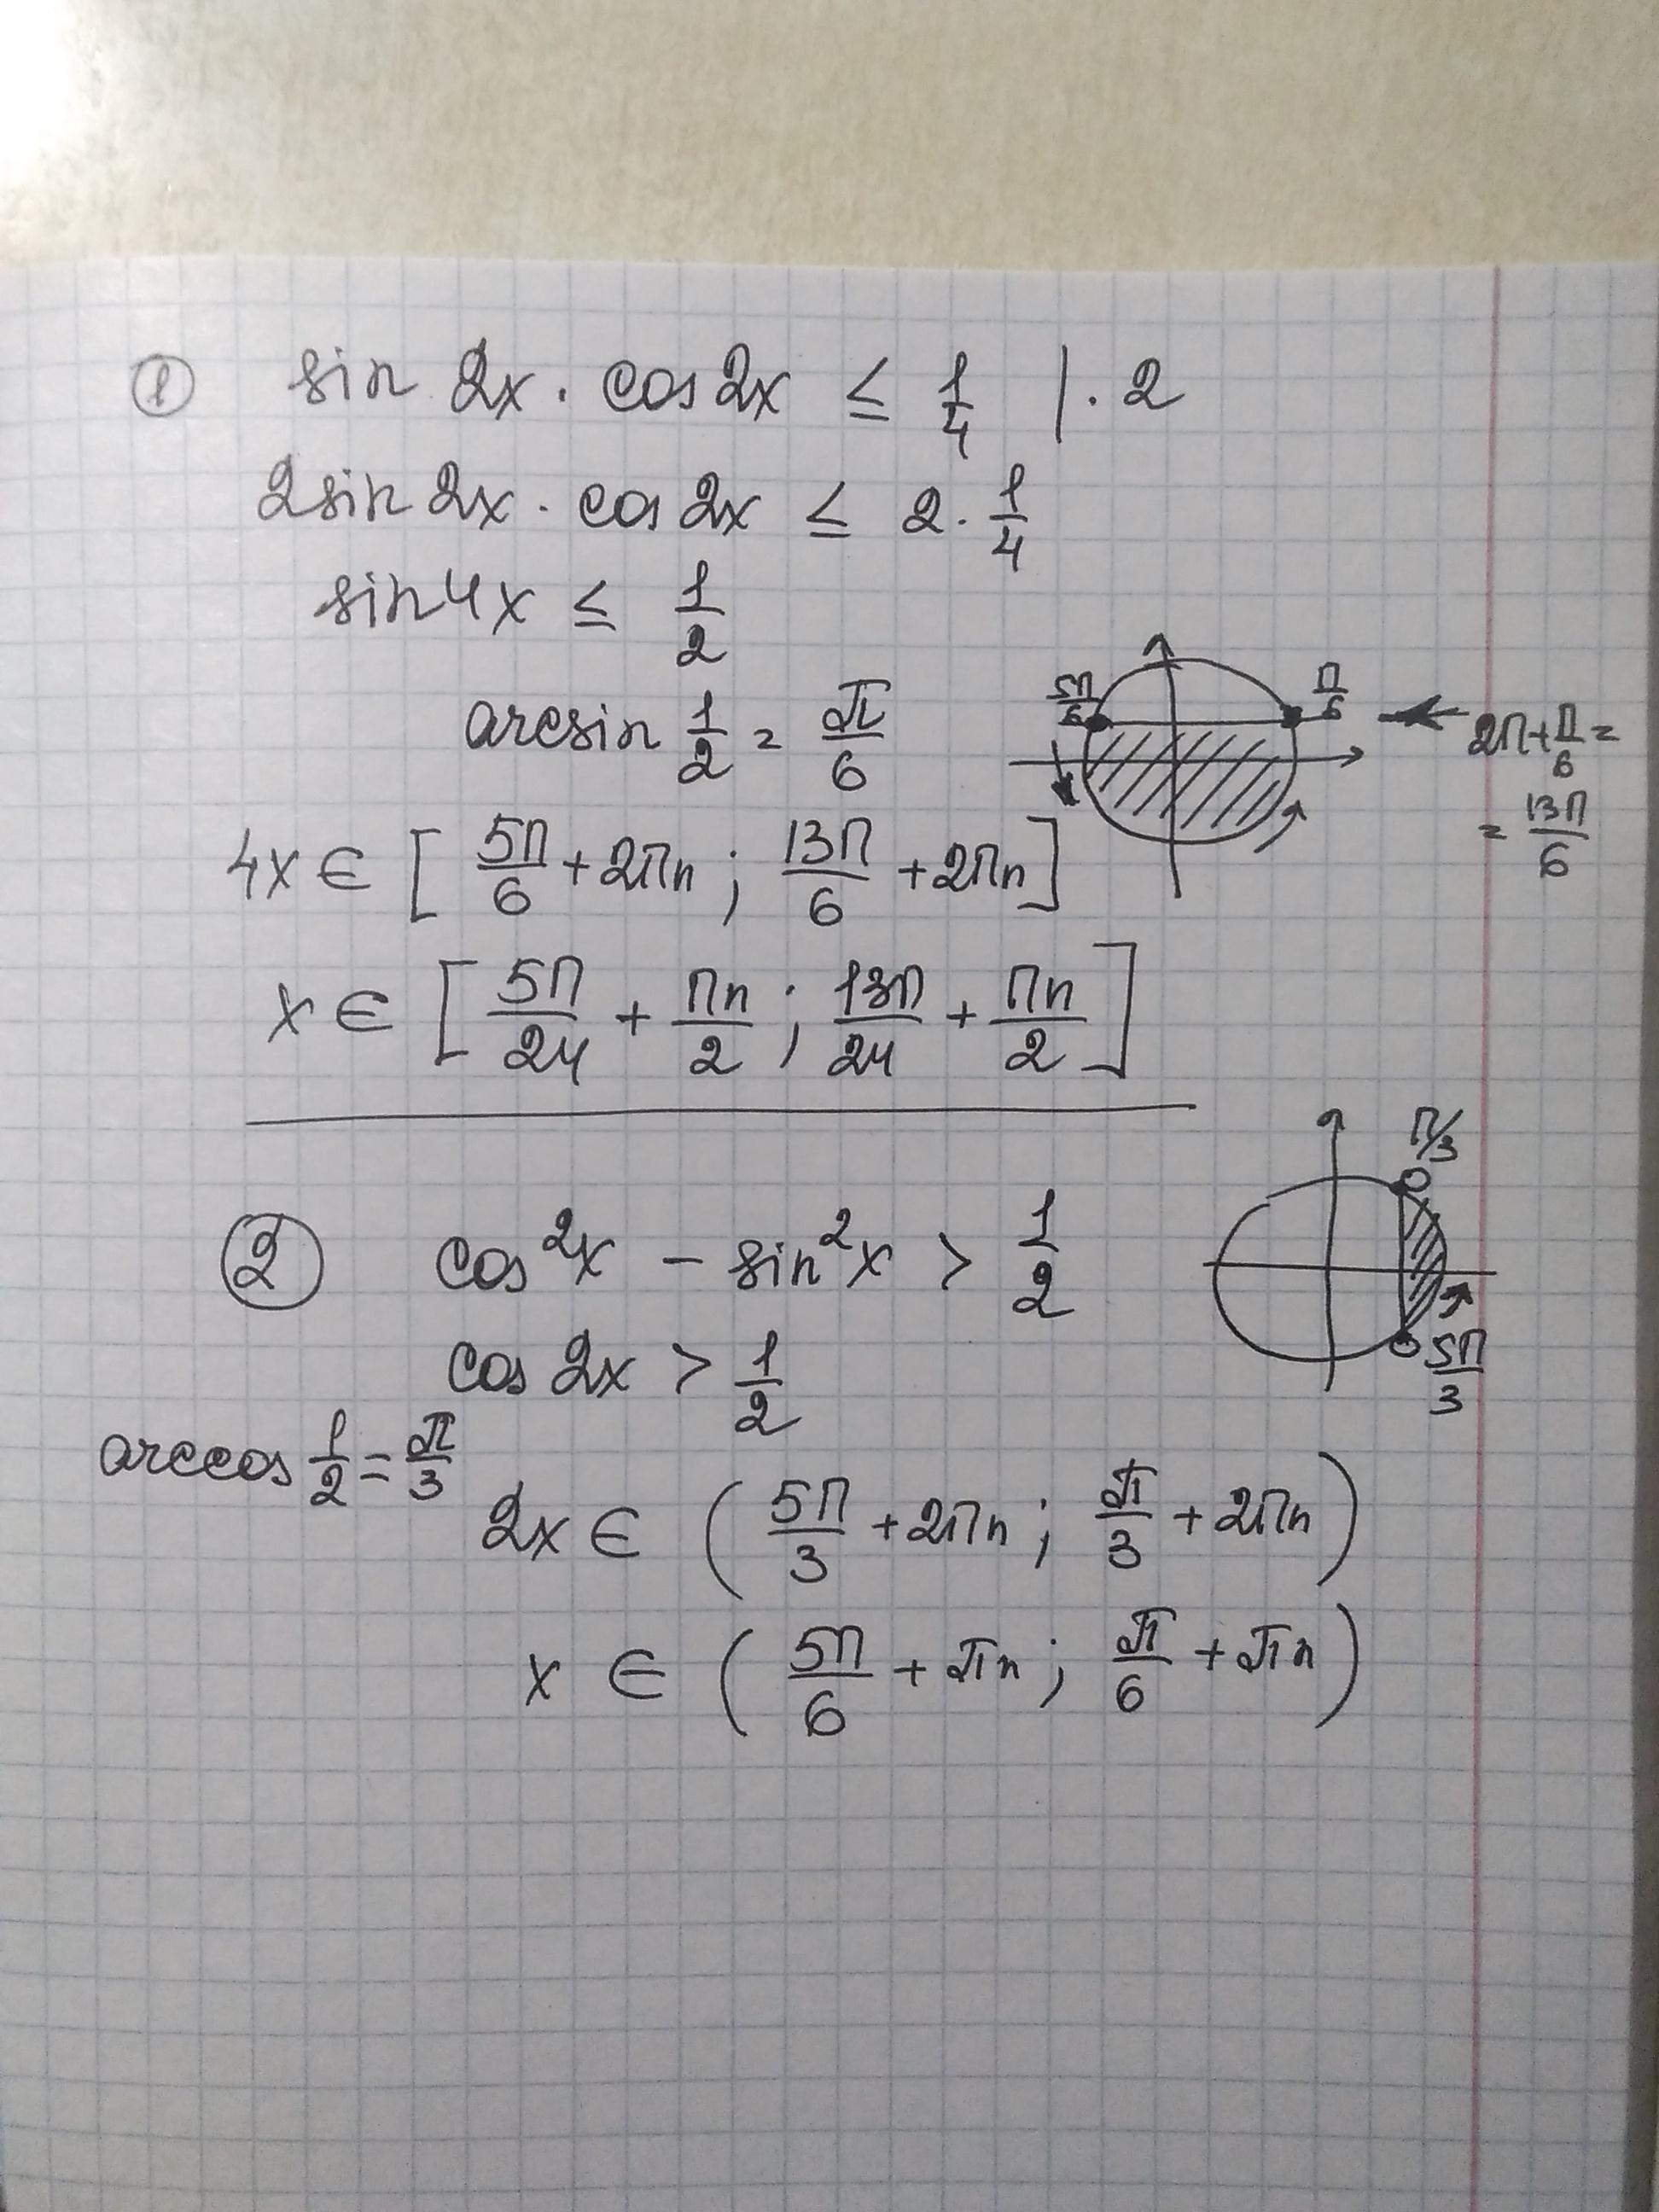 ① sin 2x · cos 2x ≤ 1/4 | · 2
2sin 2x · cos 2x ≤ 2 · 1/4
sin 4x ≤ 1/2
arcsin 1/2 = π/6
5π/6
π/6
2π + π/6 =
= 13π/6
4x ∈ [5π/6 + 2πn ; 13π/6 + 2πn]
x ∈ [5π/24 + πn/2 ; 13π/24 + πn/2]
② cos²x − sin²x > 1/2
π/3
5π/3
cos 2x > 1/2
arccos 1/2 = π/3
2x ∈ (5π/3 + 2πn ; π/3 + 2πn)
x ∈ (5π/6 + πn ; π/6 + πn)